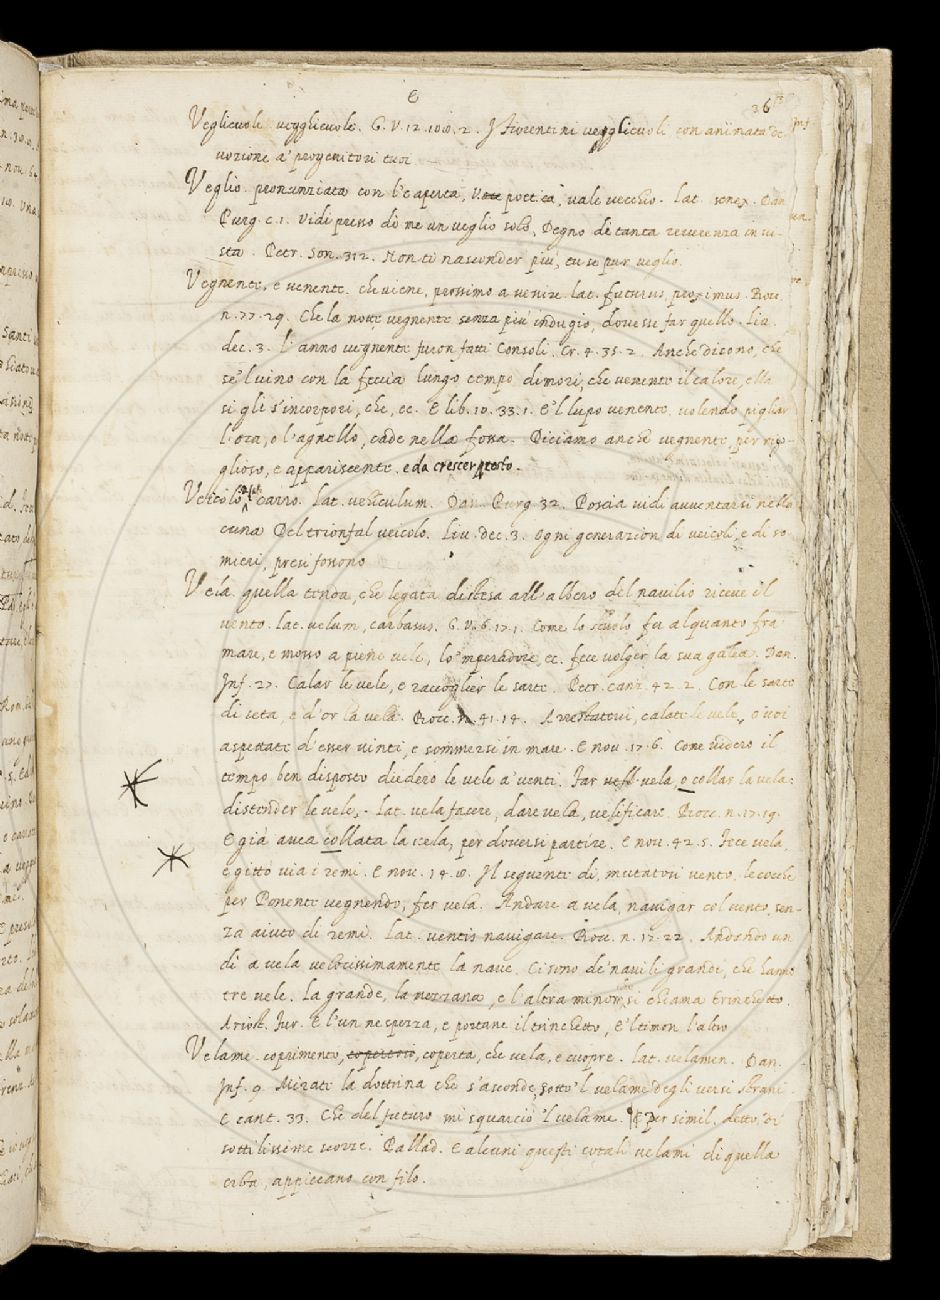 E
36
Veglieuole uegghieuole. G. V. 12. 108. 2. I Fiorentini uegglieuoli con animata de
uozione a' progenitori tuoi
Veglio pronunziata con l'e aperta, poetica, uale uecchio. lat. senex. Dan
Purg. c. 1. Vidi presso di me un ueglio solo, Degno di tanta reuerenza in ui-
sta. Petr. Son. 312. Non ti nasconder piu, tu se pur ueglio.
Vegnente, e uenente. che uiene, prossimo a uenire. lat. futurus, proximus. Bocc.
n. 77. 29. Che la notte uegnente senza piu indugio, douesse far quello. Liu.
dec. 3. l'anno uegnente furon fatti Consoli. Cr. 4. 35. 2. Anche dicono, che
se'l uino con la feccia lungo tempo dimori, che uenente il calore, ella
si gli s'incorpori, che, ec. E lib. 10. 33. 1. E'l lupo uenente, uolendo pigliar
l'oca, o l'agnello, cade nella fossa. Diciamo anche uegnente, per rig-
glioso, e appariscente. e da crescer presto.
Veicolo carro. lat. uehiculum. Dan. Purg. 32. Poscia uidi auuentarsi nella
cuna Del trionfal ueicolo. Liu. dec. 3. Ogni generazion di ueicoli, e di so-
mieri, presi furono
Vela quella tenda, che legata distesa all'albero del nauilio riceue il
uento. lat. uelum, carbasus. G. V. 6. 17. 1. Come lo stuolo fu alquanto fra
mare, e mosso a piene uele, lo'mperadore, ec. fece uolger la sua galea. Dan.
Inf. 27. Calar le uele, e raccoglier le sarte. Petr. canz. 42. 2. Con le sarte
di seta, e d'or la uela. Bocc. n. 41. 14. Arrestateui, calate le uele, o uoi
aspettate d'esser uinti, e sommersi in mare. E nou. 17. 6. Come uidero il
tempo ben disposto diedero le uele a' uenti. Far uela, o collar la uela:
distender le uele, lat. uela facere, dare uela, uelificare. Bocc. n. 17. 19.
E già auea collata la uela, per douersi partire. E nou. 42. 5. Fece uela,
e gittò uia i remi. E nou. 14. 8. Il seguente di, mutatosi uento, le cocche
per Ponente uegnendo, fer uela. Andare a uela, nauigar col uento, sen-
za aiuto di remi. Lat. uentis nauigare. Bocc. n. 12. 22. Andando un
di a uela uelocissimamente la naue. Ci sono de' nauili grandi, che hanno
tre uele. La grande, la mezzana, e l'altra minore, si chiama trinchetto.
Ariost. Fur. E l'un ne spezza, e portane il trinchetto, E'l timon l'altro
Velame. coprimento, copertorio, coperta, che uela, e cuopre. lat. uelamen. Dan.
Inf. 9. Mirate la dottrina che s'asconde, sotto'l uelame degli uersi strani.
E cant. 33. Che del futuro mi squarciò 'l uelame. E per simil. detto, di
sottilissime scorze. Pallad. E alcuni questi cotali uelami di quella
erba, appiccano con filo.